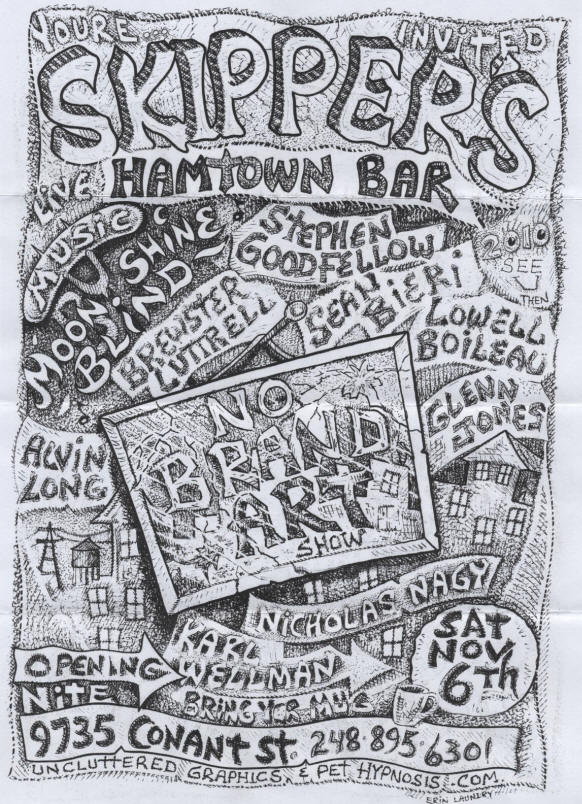 YOU'RE.... INVITED
SKIPPER'S
HAMTOWN BAR
LIVE
MUSIC
MOON SHINE
BLIND
STEPHEN
GOODFELLOW
2010
SEE
U
THEN
BREWSTER
LUTTRELL
SEAN
BIERI
LOWELL
BOILEAU
GLENN
JONES
ALVIN
LONG
NO
BRAND
ART
SHOW
NICHOLAS NAGY
KARL
WELLMAN
SAT
NOV.
6TH
OPENING
NITE
BRING YER MUG
9735 CONANT ST. 248.895.6301
UNCLUTTERED GRAPHICS & PET HYPNOSIS.COM.
ERIN LAUNDRY